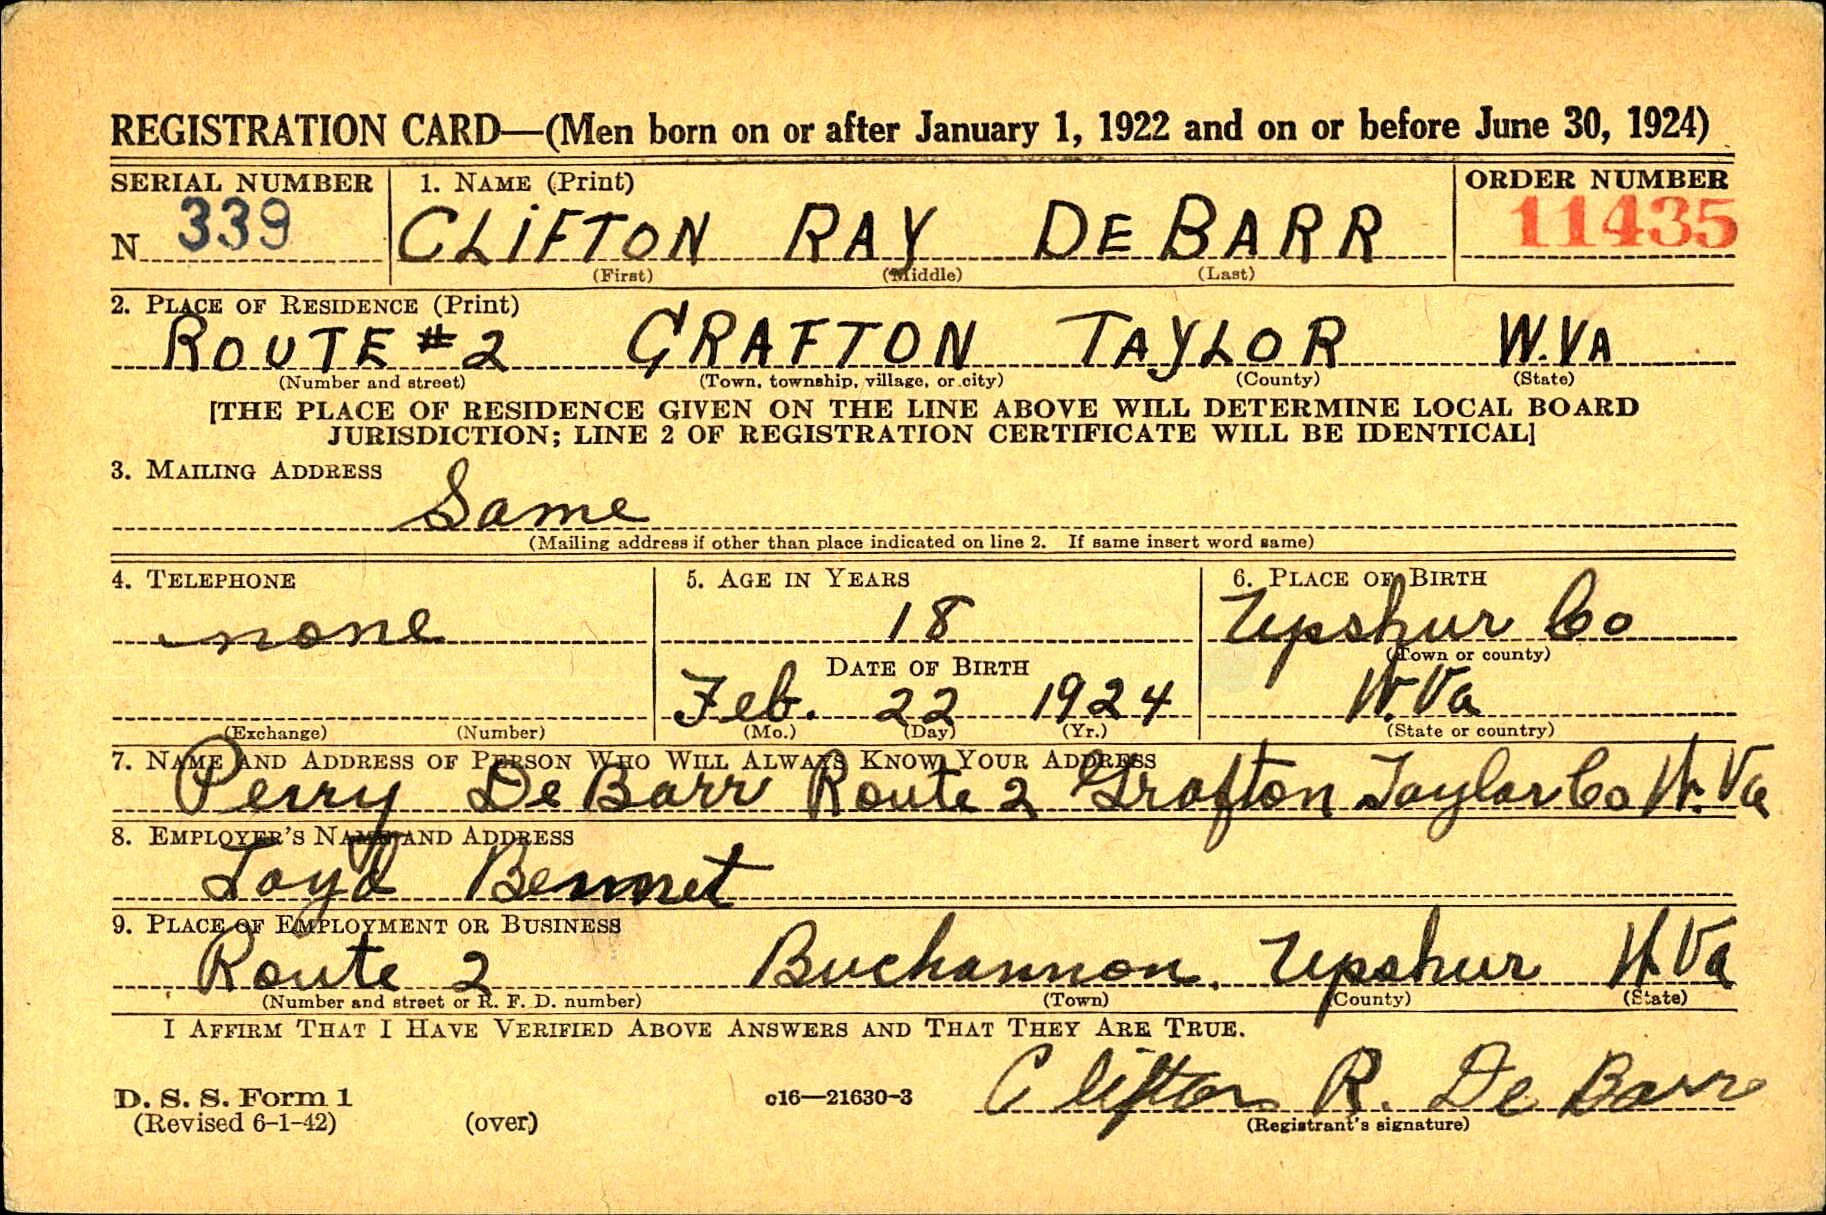 REGISTRATION CARD—(Men born on or after January 1, 1922 and on or before June 30, 1924)
SERIAL NUMBER 1. NAME (Print) ORDER NUMBER
N 339 CLIFTON RAY DE BARR 11435
(First) (Middle) (Last)
2. PLACE OF RESIDENCE (Print)
ROUTE #2 GRAFTON TAYLOR W.VA
(Number and street) (Town, township, village, or city) (County) (State)
[THE PLACE OF RESIDENCE GIVEN ON THE LINE ABOVE WILL DETERMINE LOCAL BOARD
JURISDICTION; LINE 2 OF REGISTRATION CERTIFICATE WILL BE IDENTICAL]
3. MAILING ADDRESS
Same
(Mailing address if other than place indicated on line 2. If same insert word same)
4. TELEPHONE 5. AGE IN YEARS 6. PLACE OF BIRTH
none 18 Upshur Co
(Town or county)
DATE OF BIRTH
Feb. 22 1924 W.Va
(Exchange) (Number) (Mo.) (Day) (Yr.) (State or country)
7. NAME AND ADDRESS OF PERSON WHO WILL ALWAYS KNOW YOUR ADDRESS
Perry De Barr Route 2 Grafton Taylor Co W.Va
8. EMPLOYER'S NAME AND ADDRESS
Loyd Bennet
9. PLACE OF EMPLOYMENT OR BUSINESS
Route 2 Buchannon, Upshur W Va
(Number and street or R. F. D. number) (Town) (County) (State)
I AFFIRM THAT I HAVE VERIFIED ABOVE ANSWERS AND THAT THEY ARE TRUE.
D. S. S. Form 1 c16—21630-3 Clifton R. De Barr
(Revised 6-1-42) (over) (Registrant's signature)